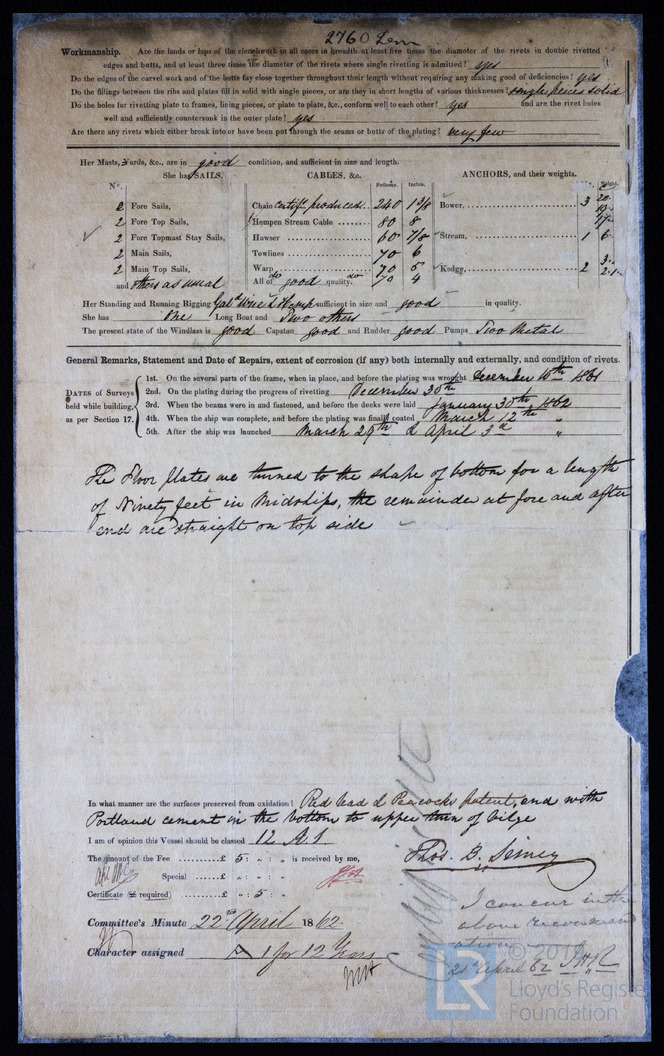 2760 Iron
Workmanship. Are the lands or laps of the clenchwork in all cases in breadth at least five times the diameter of the rivets in double rivetted
edges and butts, and at least three times the diameter of the rivets where single rivetting is admitted? yes
Do the edges of the carvel work and of the butts fay close together throughout their length without requiring any making good of deficiencies? yes
Do the fillings between the ribs and plates fill in solid with single pieces, or are they in short lengths of various thicknesses? single pieces solid
Do the holes for rivetting plate to frames, lining pieces, or plate to plate, &c., conform well to each other? yes and are the rivet holes
well and sufficiently countersunk in the outer plate? yes
Are there any rivets which either break into or have been put through the seams or butts of the plating? very few
Her Masts, Yards, &c., are in good condition, and sufficient in size and length.
She has SAILS. CABLES, &c. ANCHORS, and their weights.
No. Fathoms. Inches.
2 Fore Sails, Chain certif. produced. 240 1 3/8 Bower, 3
2 Fore Top Sails, Hempen Stream Cable 80 8
2 Fore Topmast Stay Sails, Hawser 60 7/8 Stream, 1 6
2 Main Sails, Towlines 70 6
2 Main Top Sails, Warp 70 5 Kedge, 2
and others as usual All of do good quality. do 70 4
Her Standing and Running Rigging Galvd Wire & Hemp sufficient in size and good in quality.
She has One Long Boat and Two others
The present state of the Windlass is good Capstan good and Rudder good Pumps Two Metal
General Remarks, Statement and Date of Repairs, extent of corrosion (if any) both internally and externally, and condition of rivets.
DATES of Surveys held while building, as per Section 17.
1st. On the several parts of the frame, when in place, and before the plating was wrought December 10th 1861
2nd. On the plating during the progress of rivetting December 30th
3rd. When the beams were in and fastened, and before the decks were laid January 30th 1862
4th. When the ship was complete, and before the plating was finally coated March 12th "
5th. After the ship was launched March 29th & April 3d "
The Floor plates are turned to the shape of bottom for a length
of Ninety feet in Midships, the remainder at fore and after
end are straight on top side
In what manner are the surfaces preserved from oxidation? Red lead & Peacocks patent, and with
Portland cement in the bottom to upper turn of bilge
I am of opinion this Vessel should be classed 12 A.1.
The amount of the Fee £ 5 : " : " is received by me,
Special £ " : " :
Certificate (if required) £ " : 5 :
Thos. B. Simey
I concur in the
above recommend
ation
21st April 62 J.H.R
Committee's Minute 22nd April 1862
Character assigned A 1 for 12 Years
LR
© 20
Lloyd's Register
Foundation